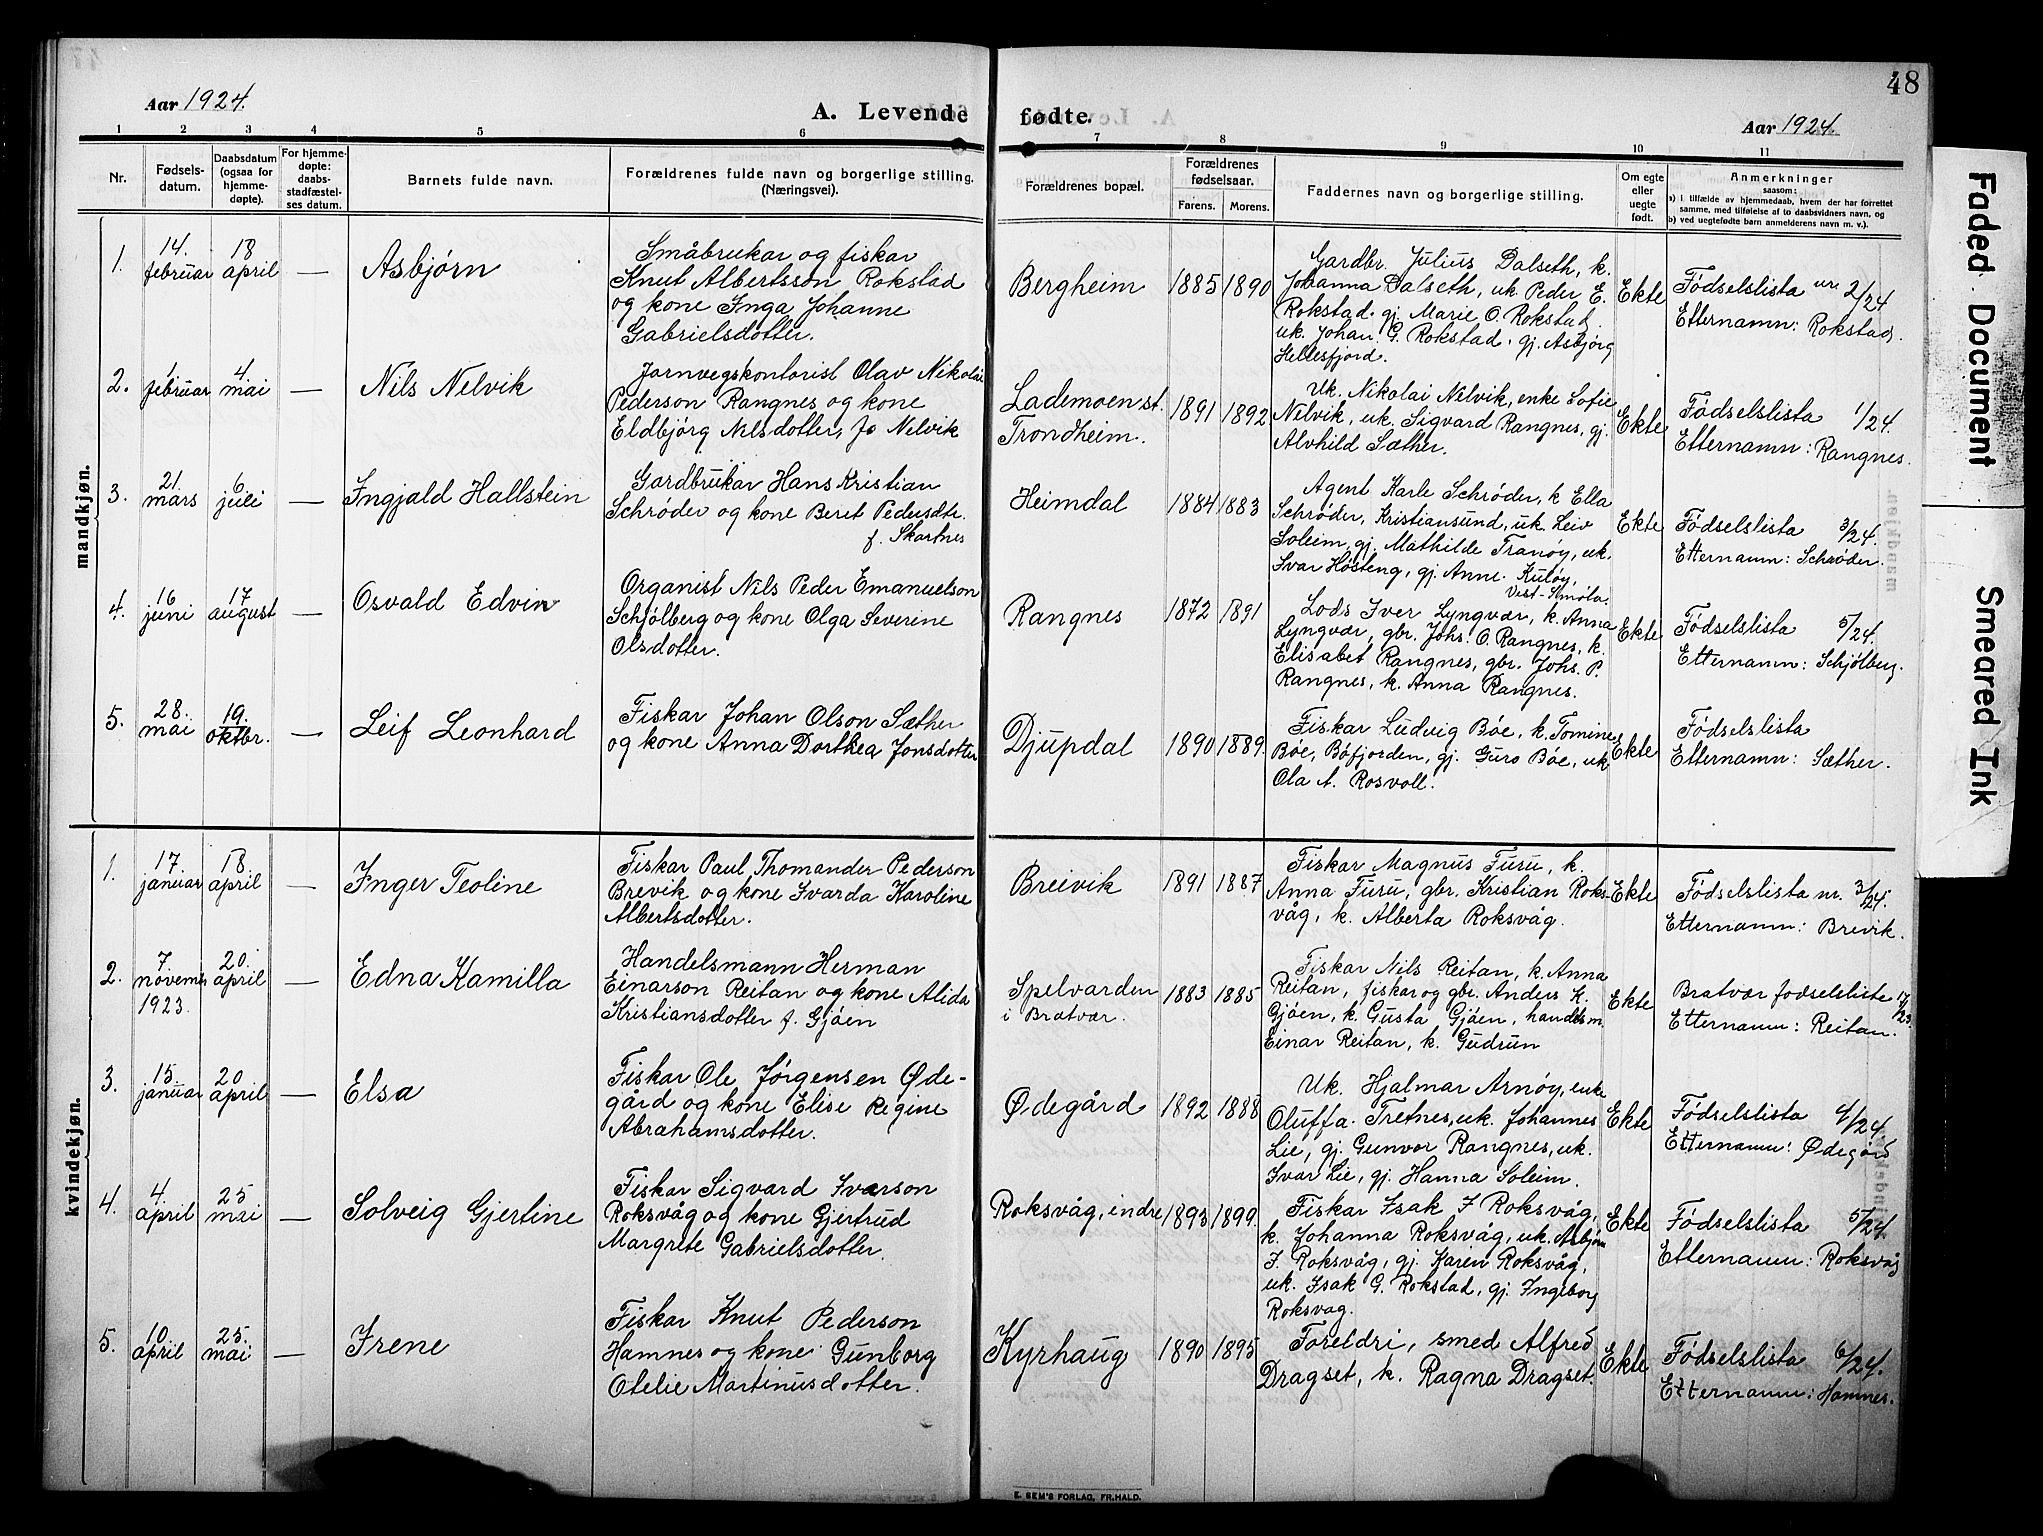 48
Aar 1924.
A. Levende fødte.
Aar 1924.
1 2 3 4 5 6 7 8 9 10 11
Nr.
Fødsels-
datum.
Daabsdatum
(ogsaa for
hjemme-
døpte).
For hjemme-
døpte:
daabs-
stadfæstel-
ses datum.
Barnets fulde navn.
Forældrenes fulde navn og borgerlige stilling.
(Næringsvei).
Forældrenes bopæl.
Forældrenes
fødselsaar.
Farens. Morens.
Faddernes navn og borgerlige stilling.
Om egte
eller
uegte
født.
Anmerkninger
saasom:
a) i tilfælde av hjemmedaab, hvem der har forrettet
samme, med tilføielse af to daabsvidners navn, og
b) ved uegtefødte barn anmelderens navn m. v.).
mandkjøn.
1.
14.
februar
18
april
—
Asbjørn
Småbrukar og fiskar
Knut Albertsson Rokstad
og kone Inga Johanne
Gabrielsdotter.
Bergheim
1885
1890
Gardbr. Julius Dalseth, k.
Johanna Dalseth, uk. Peder E.
Rokstad. gj. Marie O. Rokstad,
uk. Johan G. Rokstad, gj. Asbjørg
Hellesfjord.
Ekte
Fødselslista nr. 2/24
Etternamn: Rokstad.
2.
1
februar
4
mai
—
Nils Nelvik
Jarnvegskontorist Olav Nikolai
Pederson Rangnes og kone
Eldbjörg Nilsdotter, f. Nelvik
Lademoen st.
Trondheim.
1891
1892
Uk. Nikolai Nelvik, enke Sofie
Nelvik, uk. Sigvard Rangnes, gj.
Alvhild Sæther.
Ekte
Fødselslista 1/24.
Etternamn: Rangnes.
3.
21.
mars
6
juli
—
Ingjald Hallstein
Gardbrukar Hans Kristian
Schrøder og kone Beret Pedersdtr.
f. Skarnes
Heimdal
1884
1883
Agent Karle Schrøder, k Ella
Schrøder, Kristiansund, uk. Leiv
Soleim, gj. Mathilde Tranöy, uk.
Ivar Høsteng, gj. Anne Kuløy,
Vest-Smøla.
Ekte
Fødselslista 3/24.
Etternamn: Schrøder.
4.
16
juni
17
august
—
Osvald Edvin
Organist Nils Peder Emanuelson
Schjølberg og kone Olga Severine
Olsdotter.
Rangnes
1872
1891
Lods Iver Lyngvær, k. Anna
Lyngvær, gbr. Johs. O. Rangnes, k.
Elisabet Rangnes, gbr. Johs. P.
Rangnes, k. Anna Rangnes.
Ekte
Fødselslista 5/24.
Etternamn: Schjølberg.
5.
28.
mai
19.
oktbr.
—
Leif Leonhard
Fiskar Johan Olson Sæther
og kone Anna Dorthea Jonsdotter
Djupdal
1890
1889.
Fiskar Ludvig Bøe, k. Tomine
Bøe, Böfjorden, gj. Guro Bøe, uk
Ola A. Rosvoll.
Ekte
Fødselslista
Etternamn: Sæther.
kvindekjøn.
1.
17.
januar
18
april
—
Inger Teoline
Fiskar Paul Thomander Pederson
Brevik og kone Ivarda Karoline
Albertsdotter.
Breivik
1891
1887
Fiskar Magnus Furu, k.
Anna Furu, gbr. Kristian Roks-
våg, k. Alberta Roksvåg.
Ekte
Fødselslista nr. 3/24.
Etternamn: Brevik.
2.
7
novembr
1923.
20.
april
—
Edna Kamilla
Handelsmann Herman
Einarson Reitan og kone Alida
Kristiansdotter f. Gjøen
Spelvarden
i Bratvær.
1883
1885
Fiskar Nils Reitan, k. Anna
Reitan, fiskar og gbr. Anders K.
Gjöen, k. Gusta Gjöen, handelsm.
Einar Reitan, k. Gudrun
Ekte
Bratvær fødselsliste 17/23.
Etternamn: Reitan.
3.
15
januar
20
april
—
Elsa
Fiskar Ole Jørgensen Øde-
gård og kone Elise Regine
Abrahamsdotter.
Ødegård
1892
1888
Uk. Hjalmar Arnøy, enke
Oluffa Tretnes, uk. Johannes
Lie, gj. Gunvor Rangnes, uk.
Ivar Lie, gj. Hanna Soleim.
Ekte
Fødselslista 4/24
Etternamn: Ødegård
4.
4.
april
25
mai
—
Solveig Gjertine
Fiskar Sigvard Ivarson
Roksvåg og kone Gjertrud
Margrete Gabrielsdotter.
Roksvåg, indre
1893
1899.
Fiskar Isak I Roksvåg,
k. Johanna Roksvåg, uk. Asbjørn
I. Roksvåg, gj. Karen Roksvåg,
uk. Isak G. Rokstad, gj. Ingeborg
Roksvag.
Ekte
Fødselslista 5/24.
Etternamn: Roksvåg
5.
10
april
25.
mai
—
Irene
Fiskar Knut Pederson
Hamnes og kone Gunborg
Otelie Martinusdotter.
Kyrhaug
1890
1895
Foreldri, smed Alfred
Dragset, k. Ragna Dragset.
Ekte
Fødselslista 6/24.
Etternamn: Hamnes.
E. SEM'S FORLAG, FR.HALD.
Faded Document
Smeared Ink